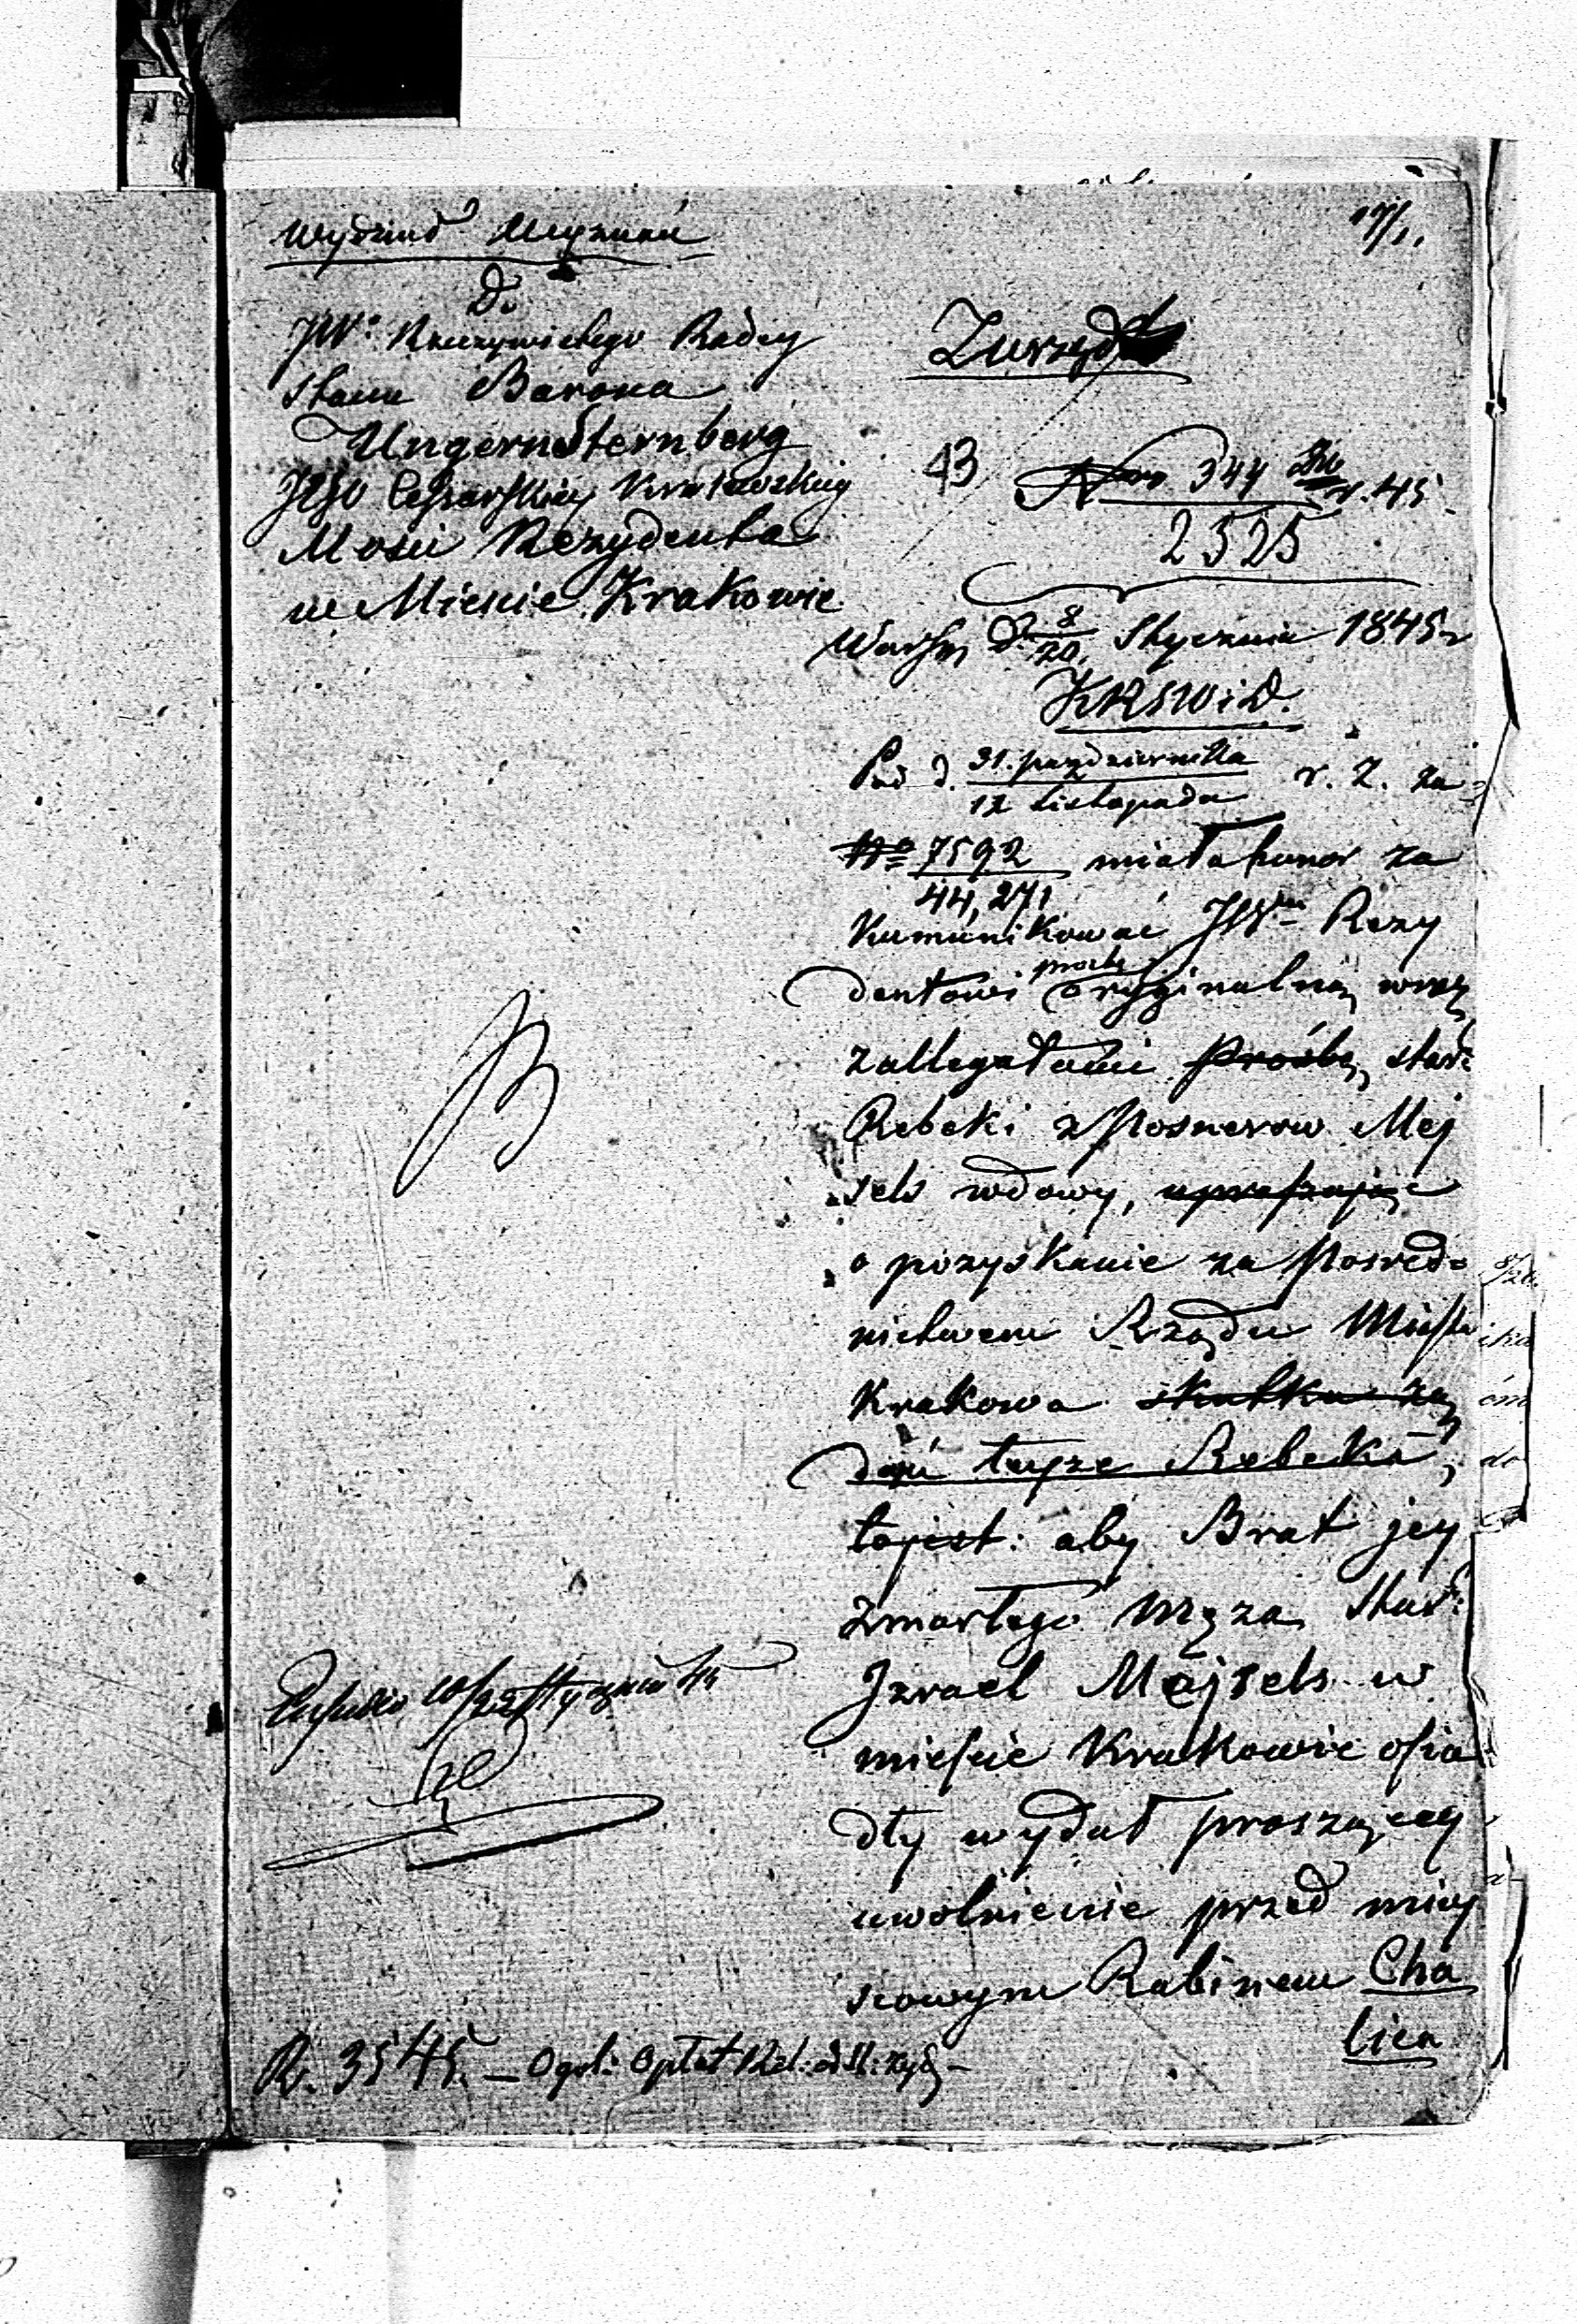 Wydział Wyznań
17/1.
Do
JW. Rzeczywistego Radcy
Stanu Barona
Ungern Sternberg
Jego Cesarskiey Królewskiey
Mości Rezydenta
w Mieście Krakowie
Zurzędu
43 Nro 344 r. 45.
2525
Warsz. d. 8/20 Stycznia 1845 r
KRSWiD.
Pod d. 31. października / 12 listopada r. z. za
No 7592 / 44,271 miała honor za
kumunikować JWmu Rezy
dentowi prośbę oryginalną wraz
z allegatami prośbę star:
Rebeki z Posnerow Mej
sels wdowy, upraszając
o pozyskanie za Pośred=
nictwem Rządu Miasta
Krakowa skutku żą
dań teyże Rebeka,
tojest: aby Brat jey
zmarłego męża Star:
Izrael Majzels w
mieście Krakowie osia
dły wydał proszącey
uwolnienie przed miey
scowym Rabinem Cha
lica
R. 3545. — Ogól: Opłat